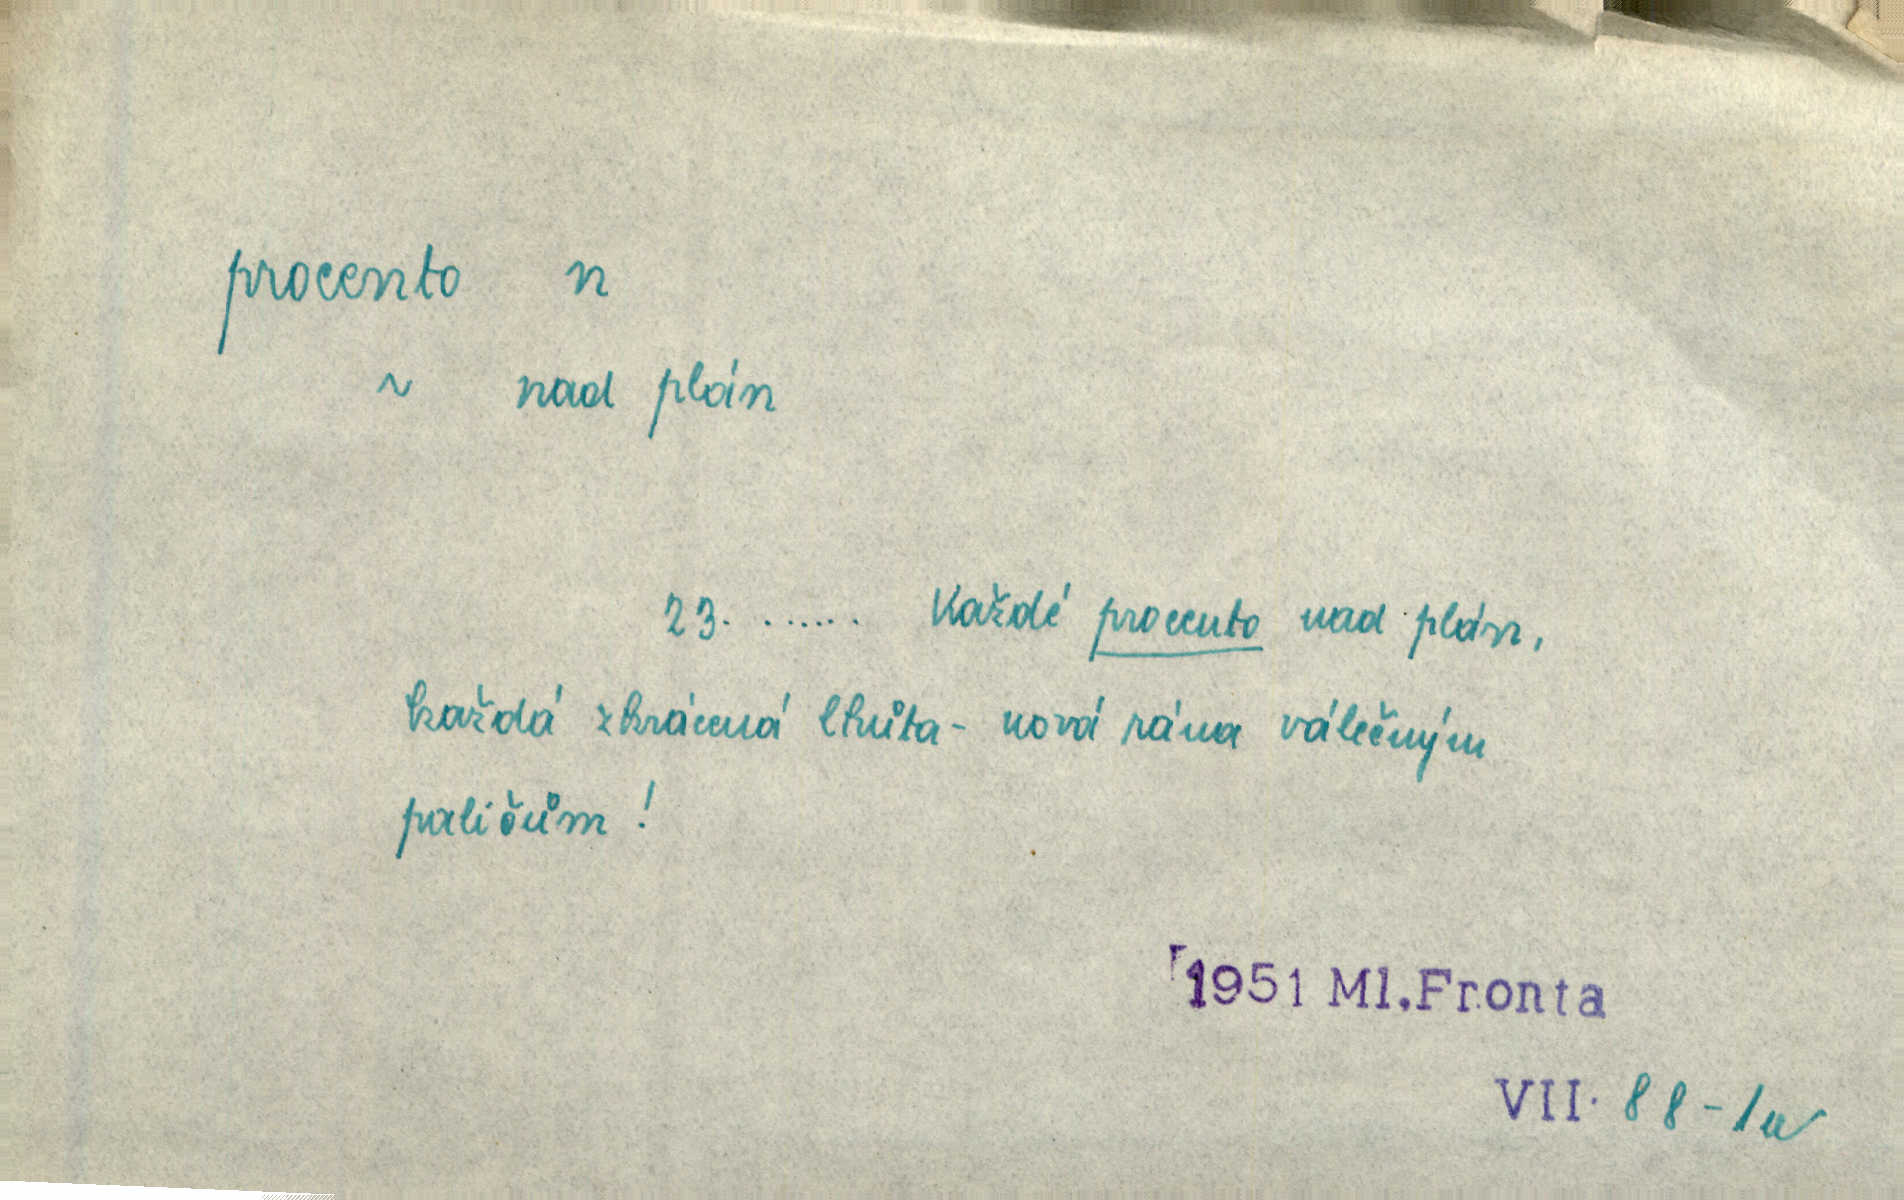 procento n
~ nad plán
23. ...... Každé procento nad plán,
každá zkrácená lhůta - nová rána válečným
paličům!
1951 Ml.Fronta
VII. 88-1a